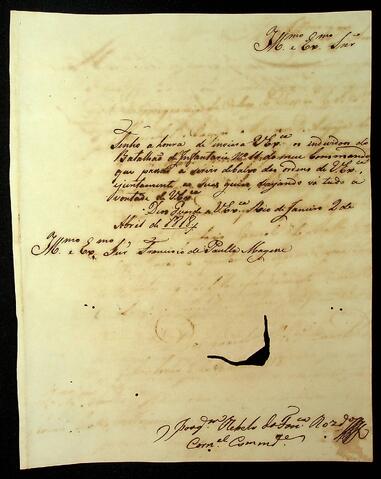 Ill.mo e Ex.mo Snr.
Tenho a honra de inviar a V Ex.cia os individuos do
Batalhão de Infantaria N.º do meu Commando
que passão a servir debaixo das ordens de V Ex.cia,
ejuntamente as suas guias dezejando vá tudo a
vontade de V Ex.cia
Deos Guarde a V Ex.cia Rio de Janeiro 2 de
Abril de 1818
Ill.mo e Ex.mo Snr. Francisco de Paulla
Joaq.m Rebelo da Fon.ca
Coron.el Comm.de